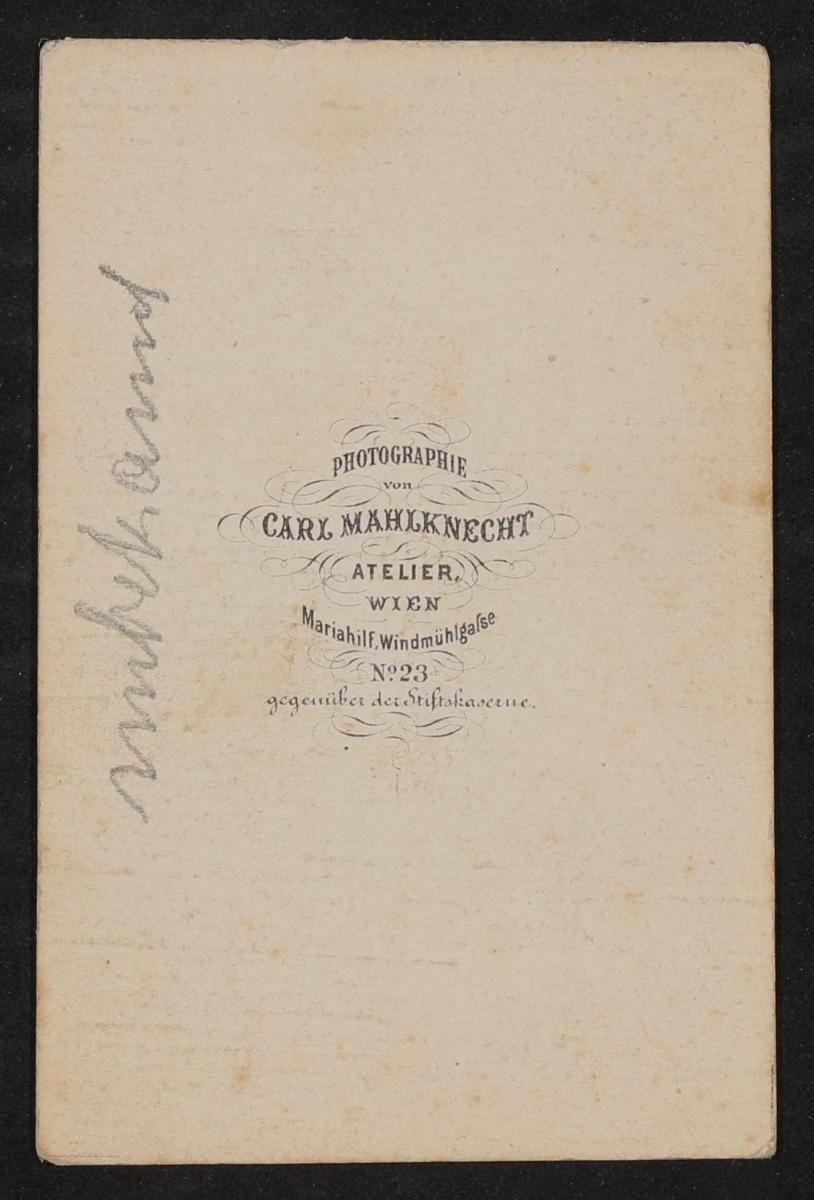 PHOTOGRAPHIE
von
CARL MAHLKNECHT
ATELIER,
WIEN
Mariahilf, Windmühlgaſse
Nº 23
gegenüber der Stiftskaserne.
unbekannt